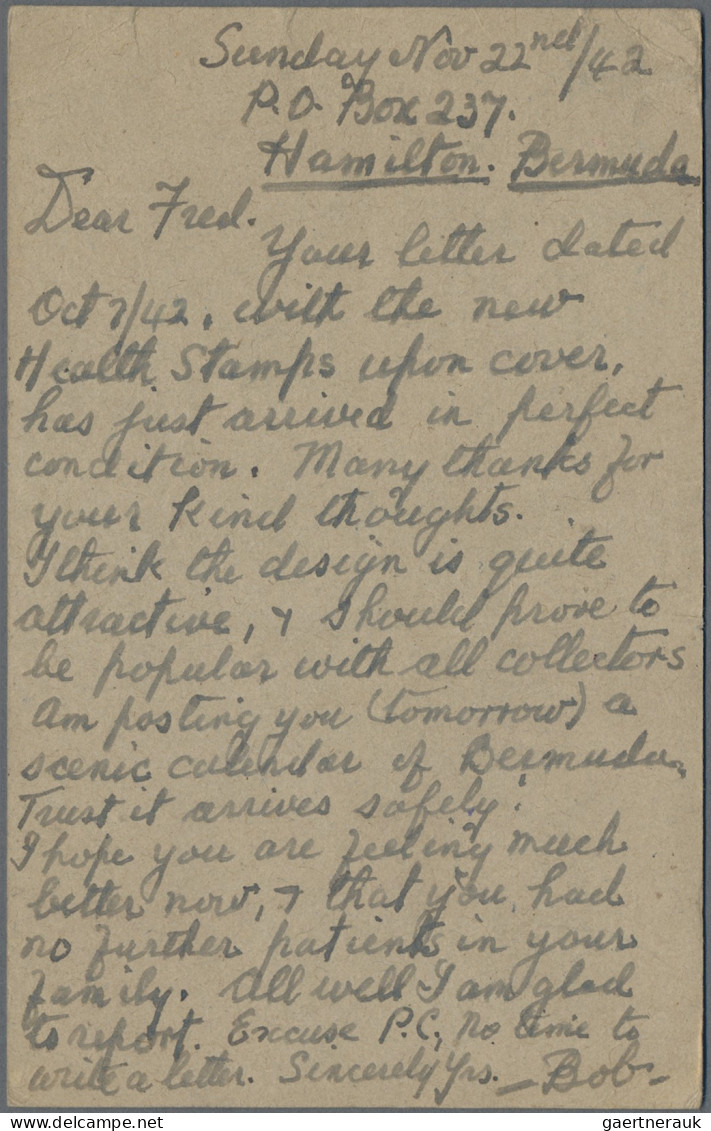 Sunday Nov 22nd/42
P.O. Box 237.
Hamilton. Bermuda
Dear Fred.
Your letter dated
Oct 7/42, with the new
Health Stamps upon cover,
has just arrived in perfect
condition. Many thanks for
your kind thoughts.
I think the design is quite
attractive, & should prove to
be popular with all collectors
Am posting you (tomorrow) a
scenic calendar of Bermuda.
Trust it arrives safely.
I hope you are feeling much
better now, & that you had
no further patients in your
family. All well I am glad
to report. Excuse P.C, no time to
write a letter. Sincerely Yrs. - Bob -
gaertnerauk